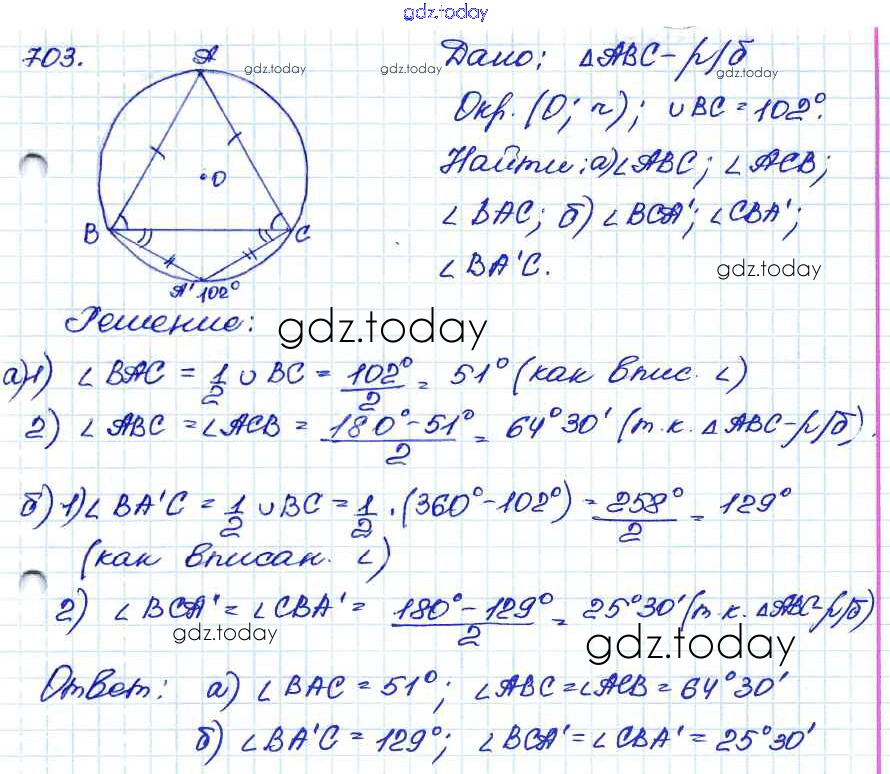 gdz.today
703.
A
gdz.today
O
B
C
A' 102°
Дано: ΔABC – р/б
gdz.today
Окр. (O; r); ∪BC = 102°.
Найти: а) ∠ABC; ∠ACB;
∠BAC; б) ∠BCA'; ∠CBA';
∠BA'C.
gdz.today
Решение:
gdz.today
а) 1) ∠BAC = 1/2 ∪BC = 102°/2 = 51° (как впис. ∠)
2) ∠ABC = ∠ACB = 180° – 51°/2 = 64°30' (т.к. ΔABC – р/б).
б) 1) ∠BA'C = 1/2 ∪BC = 1/2 · (360° – 102°) = 258°/2 = 129°
(как вписан. ∠)
2) ∠BCA' = ∠CBA' = 180° – 129°/2 = 25°30' (т.к. ΔABC – р/б)
gdz.today
gdz.today
Ответ: а) ∠BAC = 51°; ∠ABC = ∠ACB = 64°30'
б) ∠BA'C = 129°; ∠BCA' = ∠CBA' = 25°30'